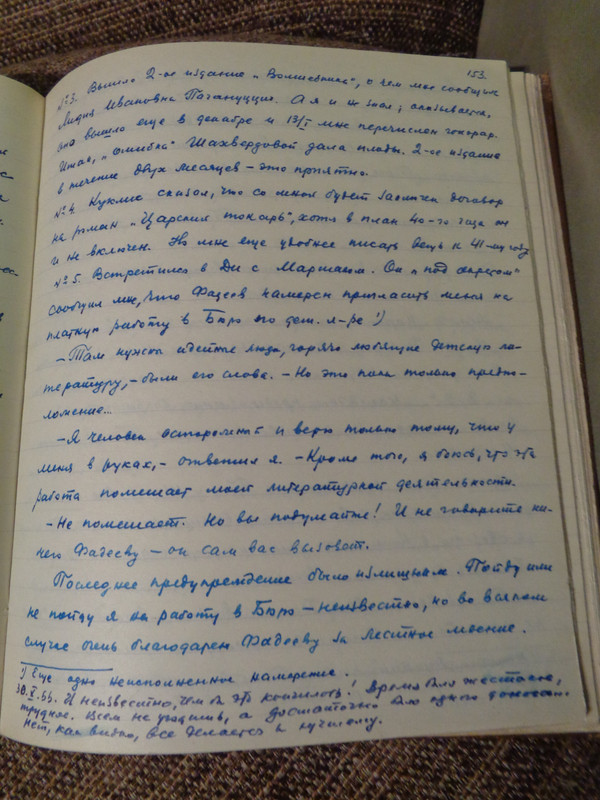 153.
№3. Вышло 2-ое издание „Волшебника", о чем мне сообщила
Лидия Ивановна Гогануцция. А я и не знал; оказывается,
оно вышло еще в декабре и 13/I мне перечислен гонорар.
Итак, „ошибка" Шахвердовой дала плоды. 2-ое издание
в течение двух месяцев – это приятно.
№4. Куклис сказал, что со мной будет заключен договор
на роман „Царский токарь", хотя в план 40-го года он
и не включен. Но мне еще удобнее писать вещь к 41-му году
№5. Встретился в Ди с Маршаком. Он „под секретом"
сообщил мне, что Фадеев намерен пригласить меня на
платную работу в Бюро по дет. л-ре ¹)
– Там нужны идейные люди, горячо любящие детскую ли-
тературу, – были его слова. – Но это пока только предпо-
ложение...
– Я человек осторожный и верю только тому, что у
меня в руках, – ответил я. – Кроме того, я боюсь, что эта
работа помешает моей литературной деятельности.
– Не помешает. Но вы подумайте! И не говорите ни-
чего Фадееву – он сам вас вызовет.
Последнее предупреждение было излишним. Пойду или
не пойду я на работу в Бюро – неизвестно, но во всяком
случае очень благодарен Фадееву за лестное мнение.
¹) Еще одно неисполненное намерение.
30.X.53. И неизвестно, чем бы это кончилось! Время было жестокое,
трудное. Всем не угодишь, а достаточно было одного доноса...
Нет, как видно, все делается к лучшему.